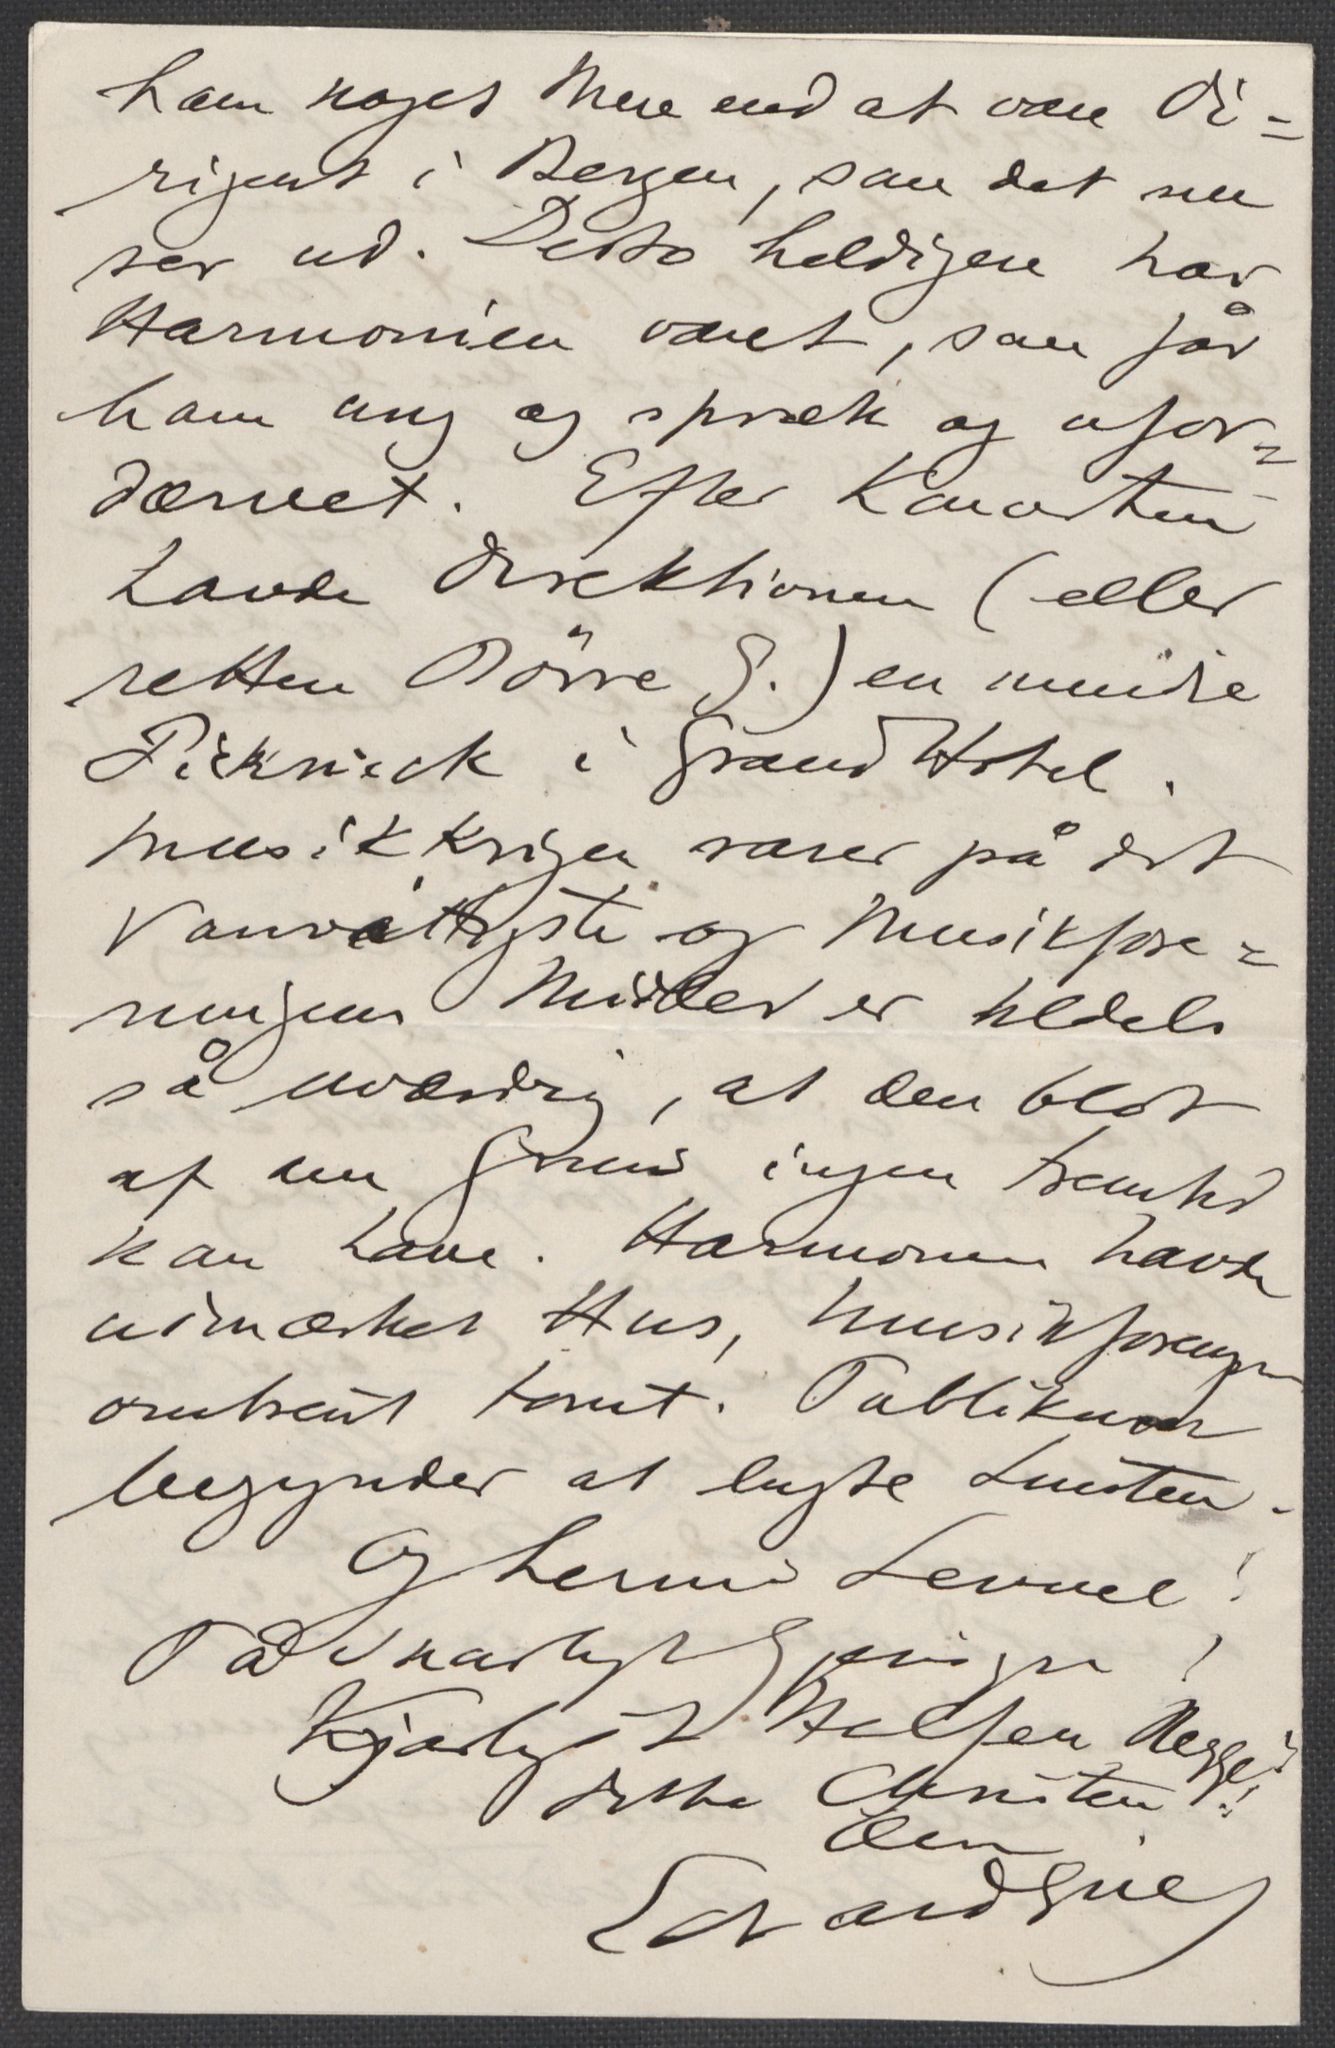 ham noget Mere end at være Di=
rigent i Bergen, som det nu
ser ud. Desto heldigere har
Harmonien været, som får
ham ung og spræk og ufor=
dærvet. Efter Koncerten
havde Direktionen (eller
retten Börre G.) en mindre
Picknick i Grand Hotel.
Musikkrigen raser på det
Vanvittigste og Musikfore=
ningens Middel er tildels
så uværdig, at den blot
af den Grund ingen Fremtid
kan have. Harmonien havde
udmærket Hus, Musikforeningen
omtrent tomt. Publikum
begynder at lugte Lunten.
Og hermed Levvel!
På snarligt Gjensyn!
Kjærligst Hilsen Begge!
Deres
Edvard Grieg